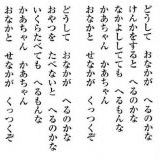 どうして おなかが へるのかな
けんかをすると へるのかな
なかよししてても へるもんな
かあちゃん かあちゃん
おなかと せなかが くっつくぞ
どうして おなかが へるのかな
おやつを たべないと へるのかな
いくらたべても へるもんな
かあちゃん かあちゃん
おなかと せなかが くっつくぞ